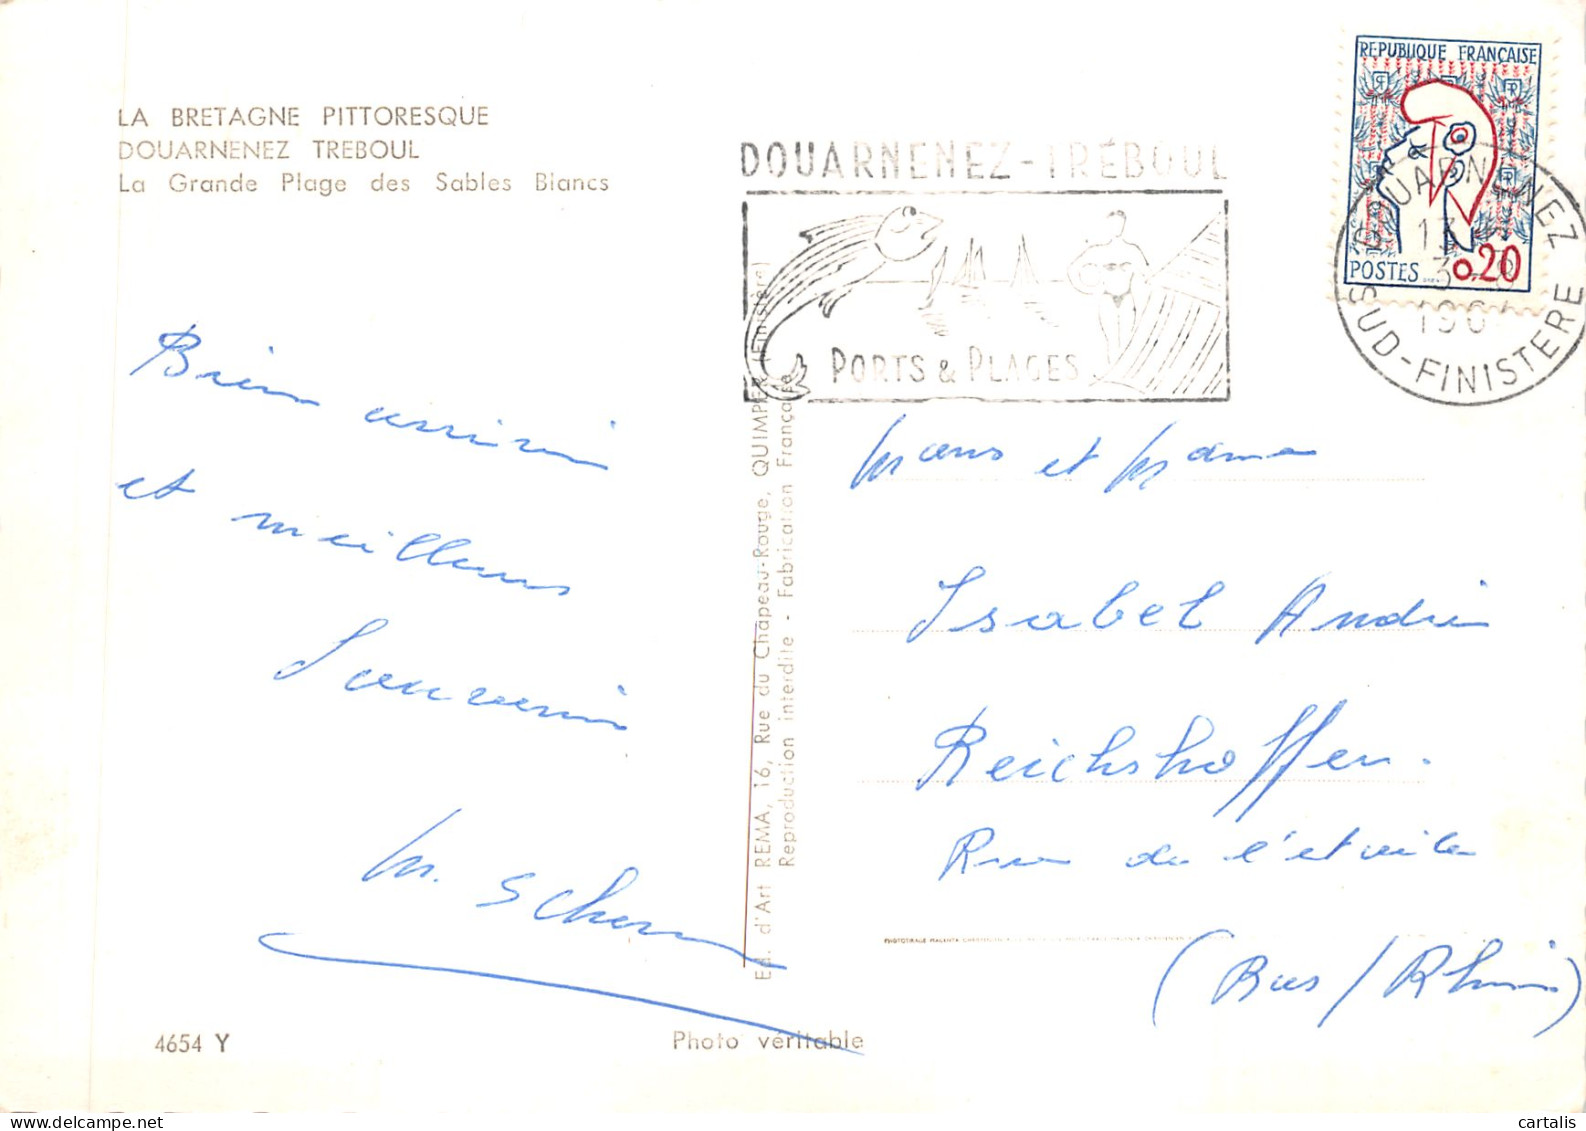 LA BRETAGNE PITTORESQUE
DOUARNENEZ TREBOUL
La Grande Plage des Sables Blancs
Bien
et meilleurs
Souvenirs
M. Scherr
4654 Y
Photo véritable
Ed. d'Art REMA, 16, Rue du Chapeau-Rouge, QUIMPER (Finistère)
Reproduction interdite - Fabrication Française
DOUARNENEZ-TRÉBOUL
PORTS & PLAGES
REPUBLIQUE FRANÇAISE
POSTES
0,20
DOUARNENEZ
13 H
3-8
196
SUD-FINISTERE
et
Isabel André
Reichshoffen.
Rue de l'étoile
(Bas/Rhin)
cartalis